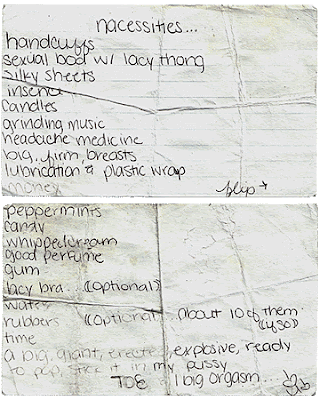 nacessities...
handcuffs
sexual bod w/ lacy thong
silky sheets
insence
candles
grinding music
headache medicine
big, firm, breasts
lubrication & plastic wrap
money
flip
peppermints
candy
whipped cream
good perfume
gum
lacy bra ... (optional)
water
rubbers (optional) about 10 of them
time
a big, giant, erected, explosive, ready
to pop, stick it in my pussy
1 big orgasm...